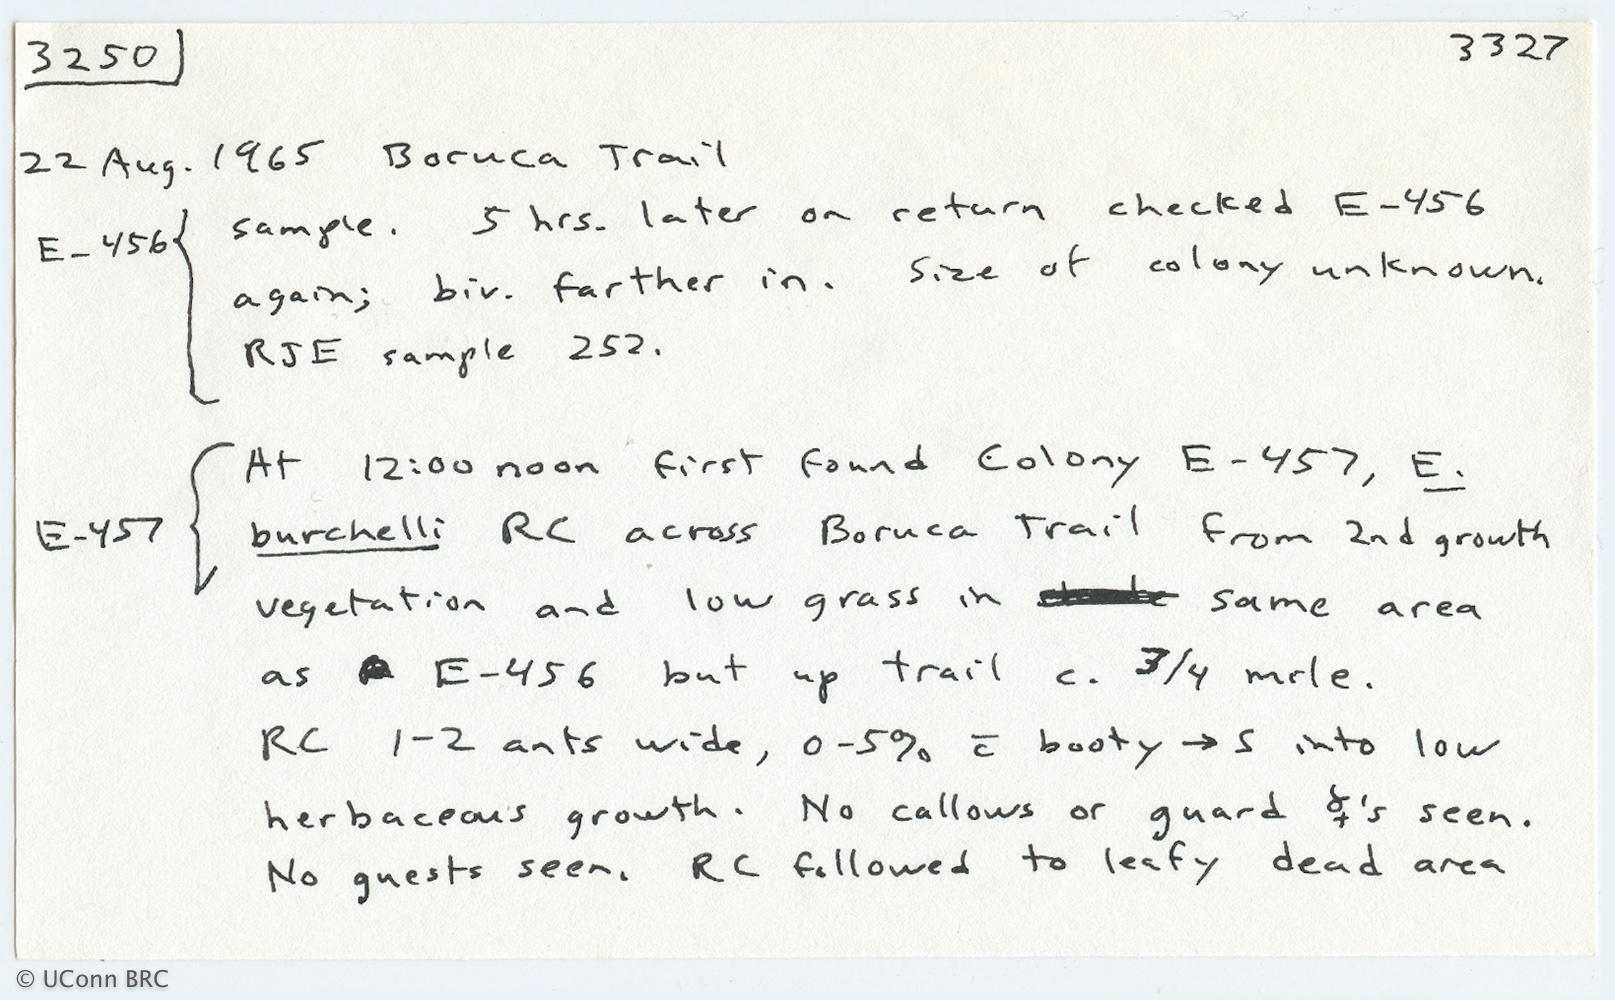 3250 3327
22 Aug. 1965 Boruca Trail
E-456 sample. 5 hrs. later on return checked E-456
again; biv. farther in. Size of colony unknown.
RJE sample 252.
At 12:00 noon first found Colony E-457, E.
E-457 burchelli RC across Boruca Trail from 2nd growth
vegetation and low grass in same area
as E-456 but up trail c. 3/4 mile.
RC 1-2 ants wide, 0-5% c̄ booty → S into low
herbaceous growth. No callows or guard ☿'s seen.
No guests seen. RC followed to leafy dead area
© UConn BRC